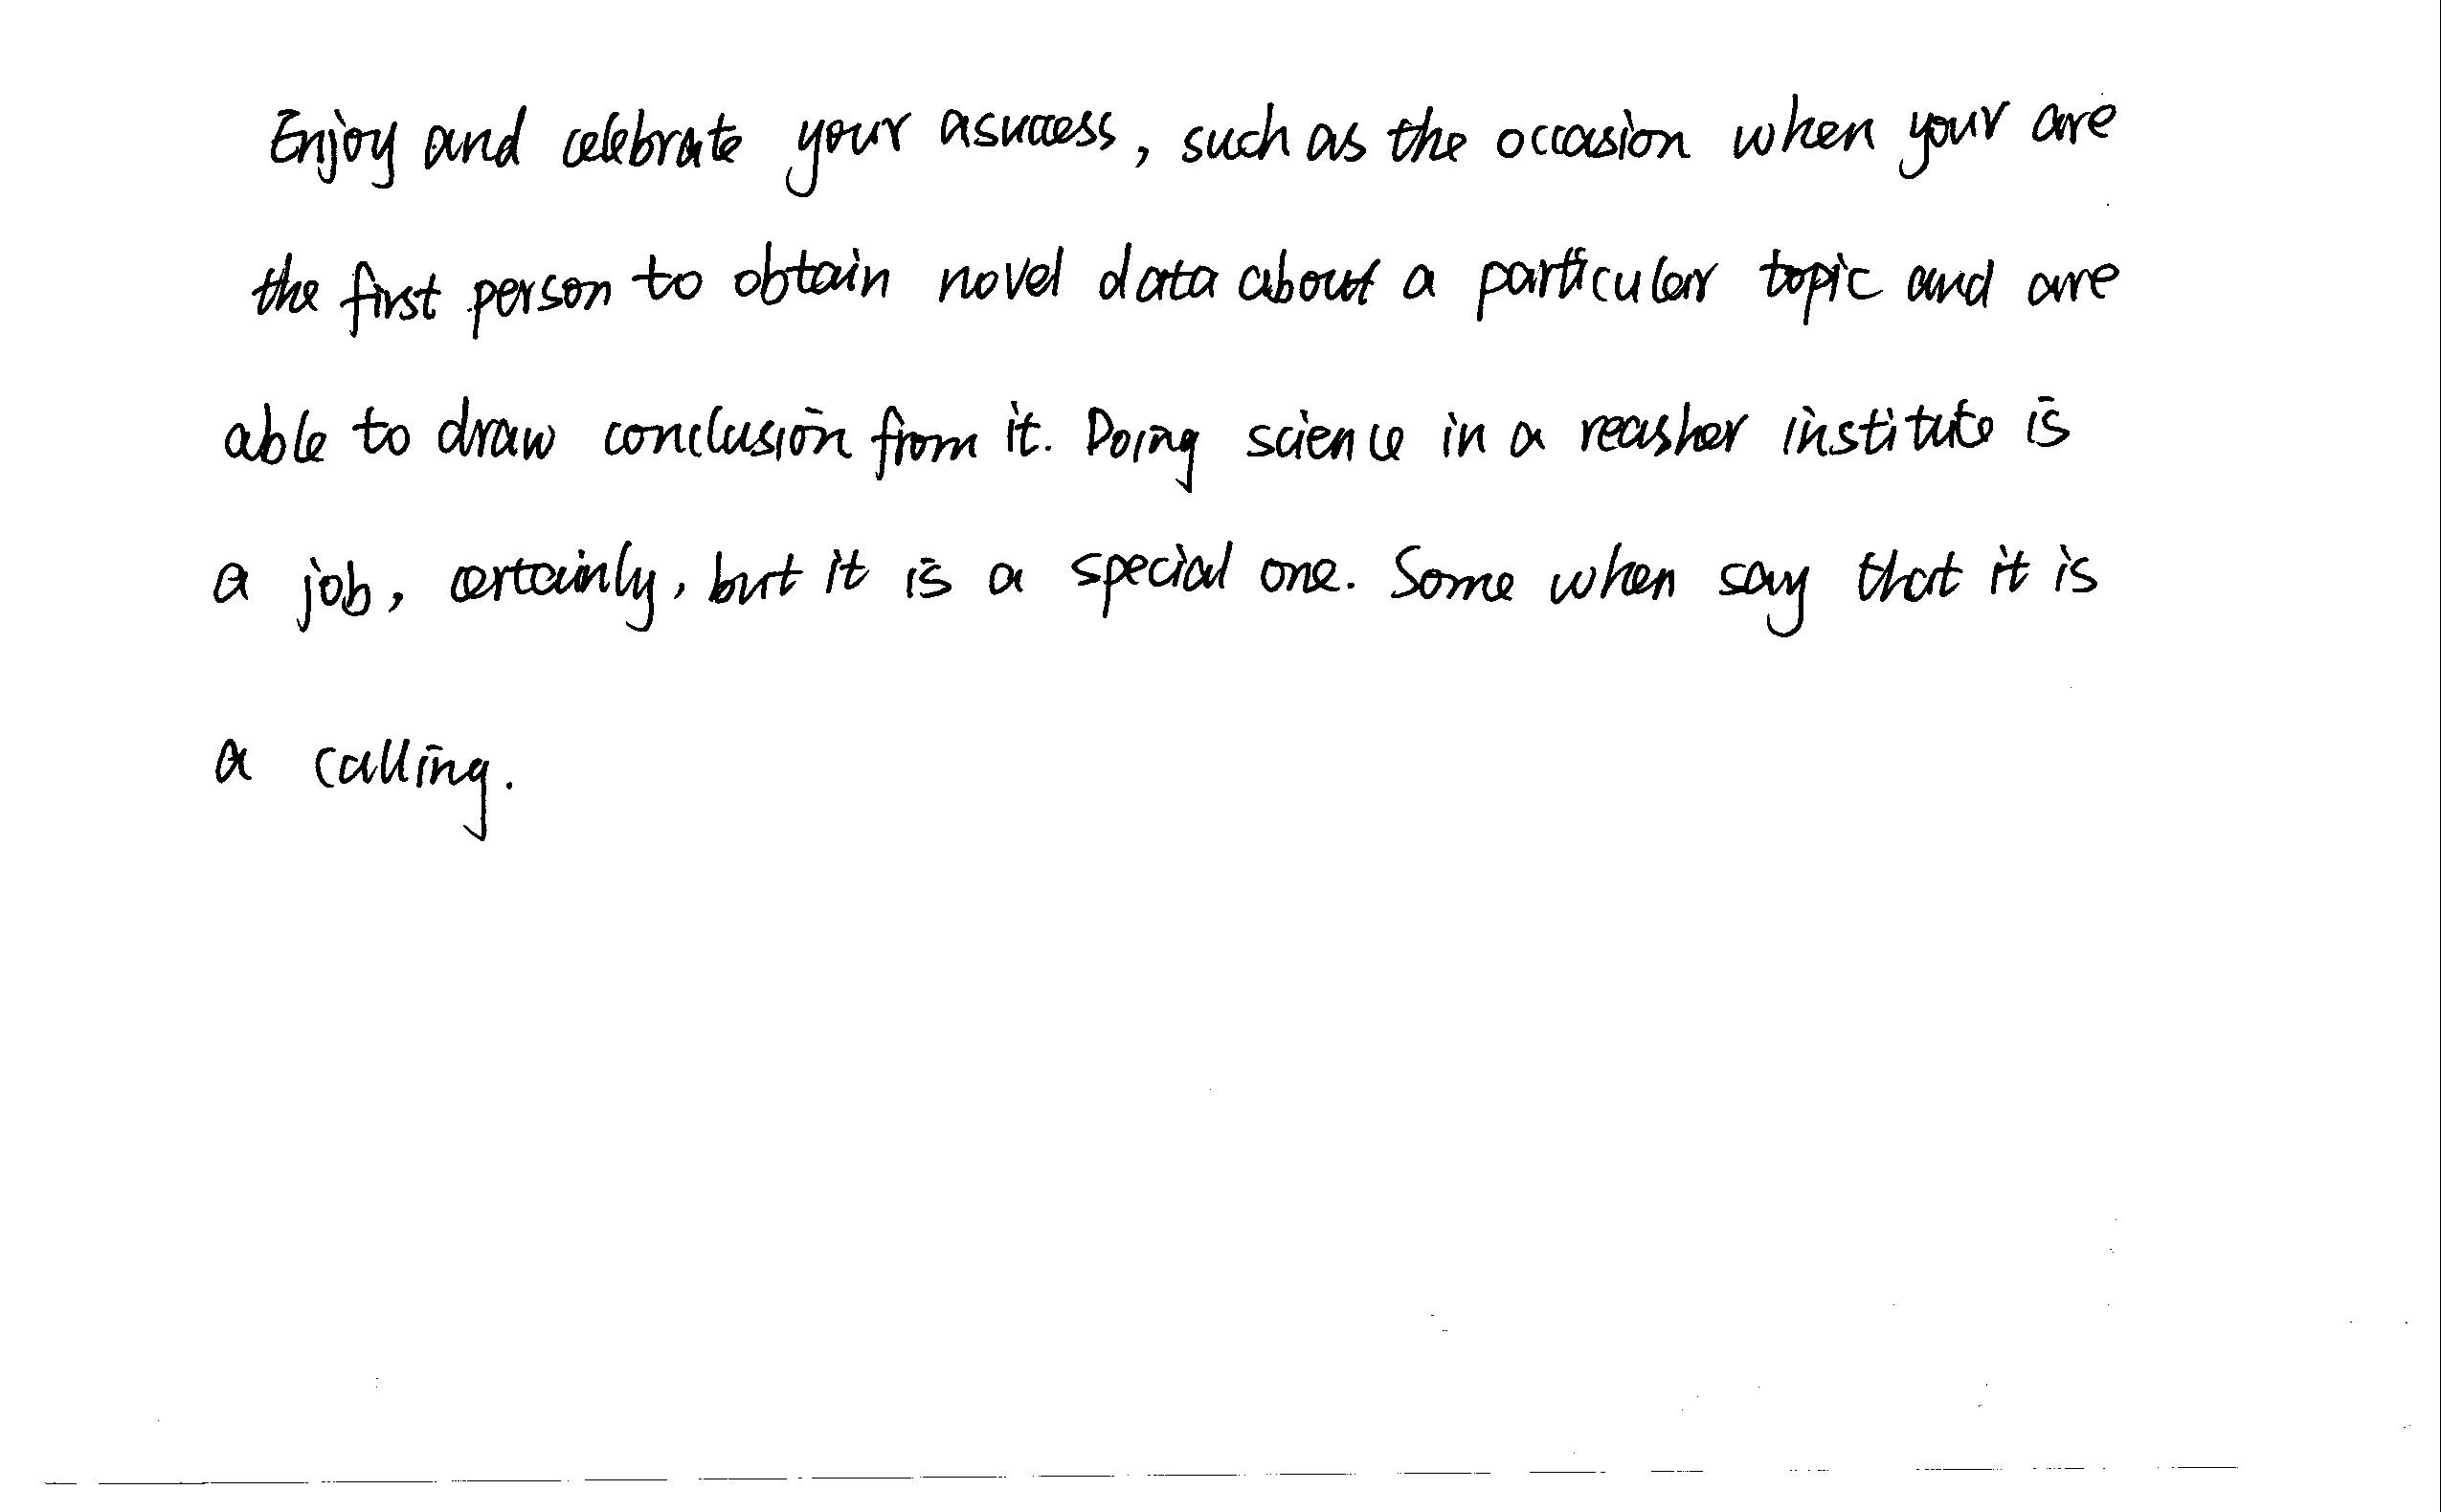 Enjoy and celebrate your asuccess, such as the occasion when your are
the first person to obtain novel data about a particular topic and are
able to draw conclusion from it. Doing science in a reasher institute is
a job, certainly, but it is a special one. Some when say that it is
a calling.